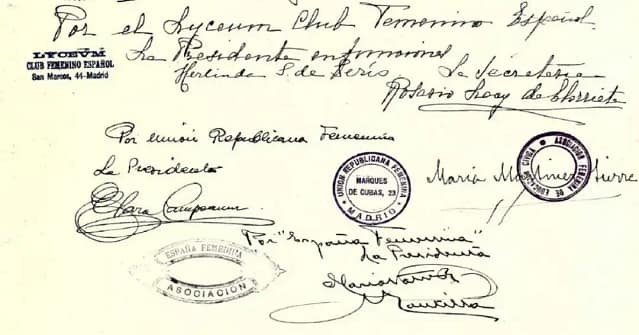 Por el Lyceum Club Femenino Español
La Presidente en funciones
Herlinda G. de
La Secretaria
Rosario Lacy de
LYCEVM
CLUB FEMENINO ESPAÑOL
San Marcos, 44-Madrid
Por Unión Republicana Femenina
La Presidenta
Clara Campoamor
UNION REPUBLICANA FEMENINA
MARQUES
DE CUBAS, 23
MADRID
María Martínez Sierra
ASOCIACION FEMENINA DE EDUCACION CIVICA
Por "España Femenina"
La Presidenta
María
ESPAÑA FEMENINA
ASOCIACION